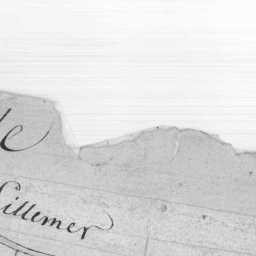 le
Sillemer